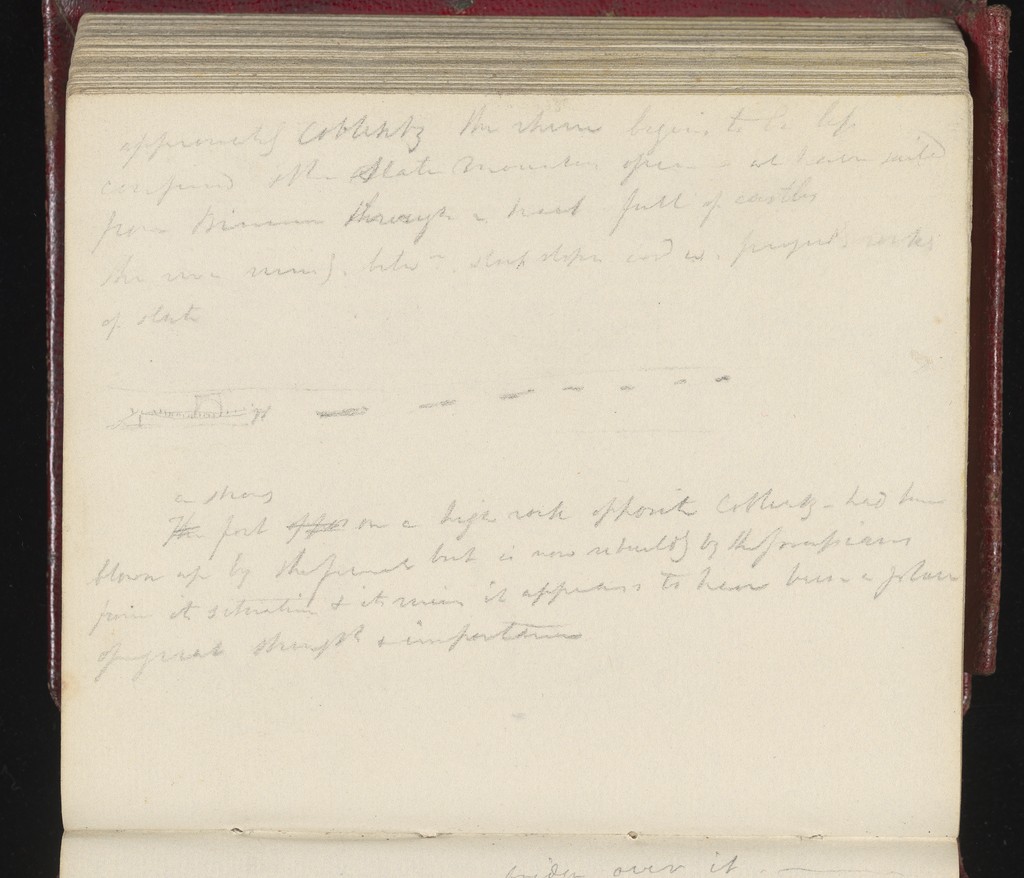 approaching Coblentz the rhine begins to be less
confined the Slate mountains open - we have sailed
from Bingen through a tract full of castles
the river running betwn. steep slopes and
rocks
of slate
a strong
The fort on a high rock opposite Coblentz - had been
blown up by the french but is now rebuildg by the prussians
from its situation & its ruins it appears to have been a place
of great strength & importance
over it